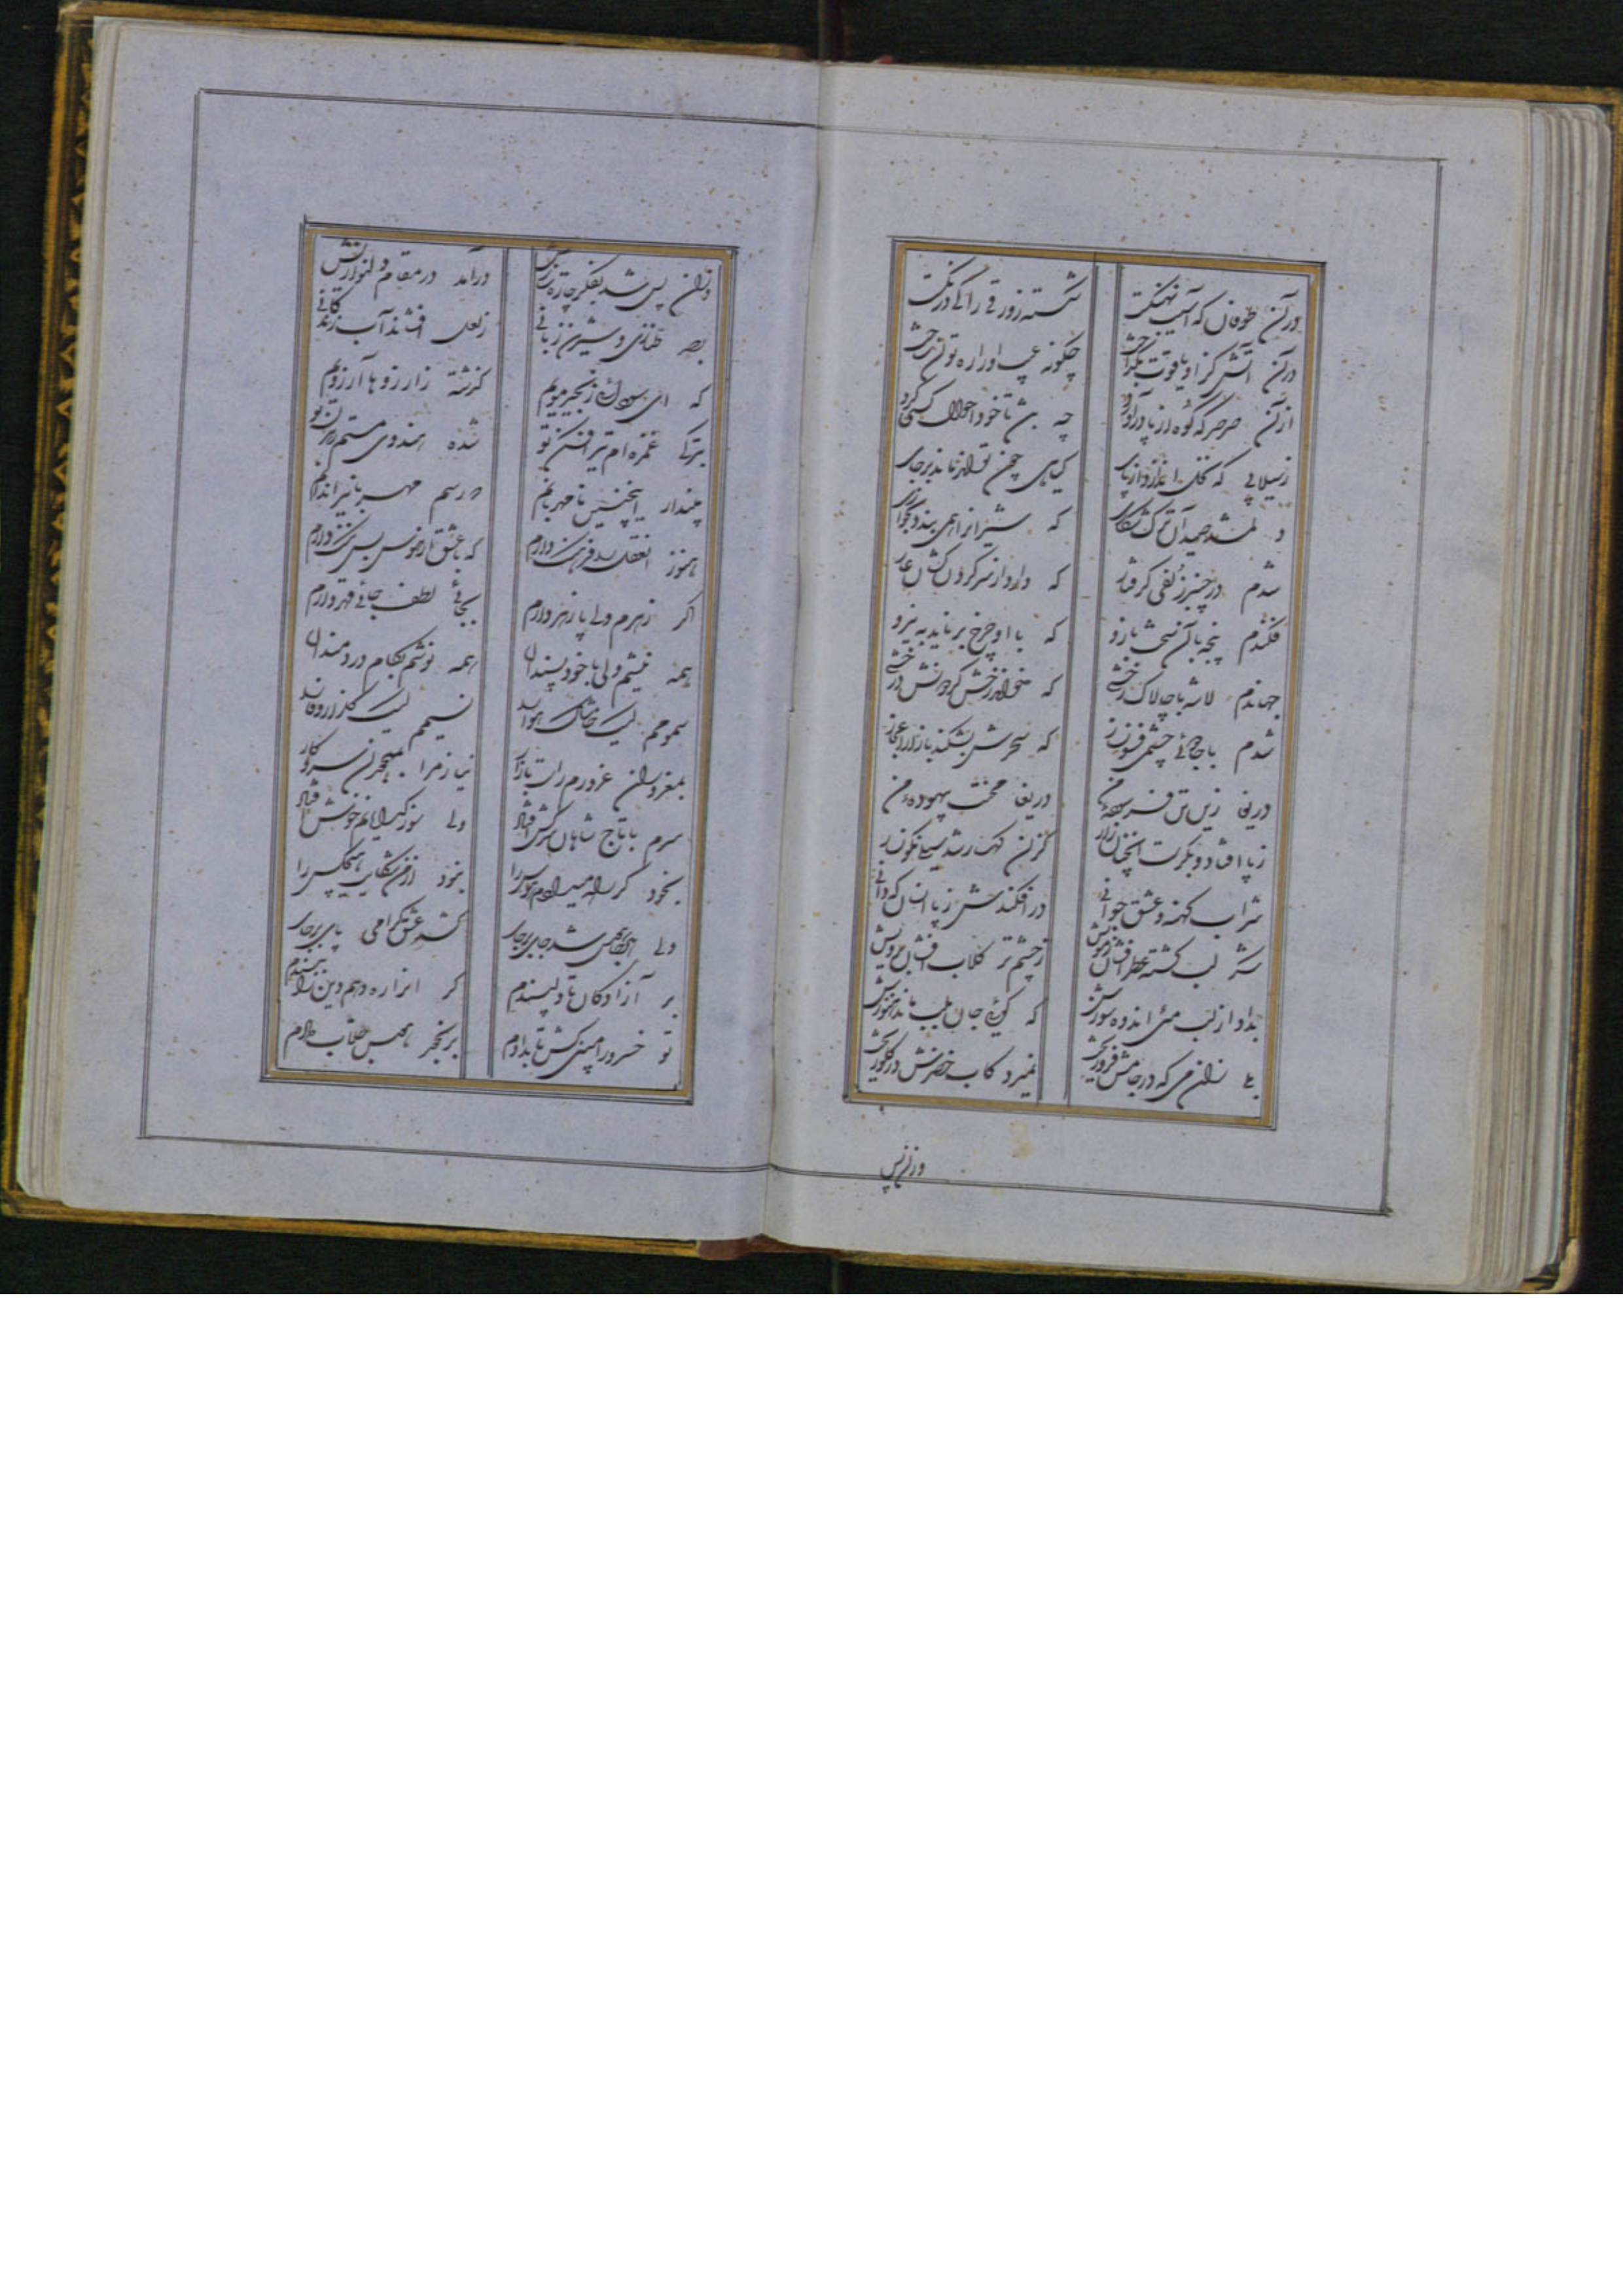 در آن طوفان که آسیب نهنگست شکسته زورقی را کی درنگست
در آن آتش کزو یاقوت بگداخت چگونه چپ او را ره توان
از آن صرصر که کوه از پا درآورد چه با خود احوال کسی کرد
ز سیلابی که اندازد از پای گیاهی چون تواند ماند برجای
دلم شد صید آن ترک شکاری که شیران را همی بندد بخواری
شدم در چنبر زلفی گرفتار که دارد از سر گردون کشان عار
فکندم پنجه با آن سخت بازو که با او چرخ برناید به نیرو
جهاندم لاشه با چالاک رخشی که خواند رخش گردونش درخشی
شدم با جادوئی چشمی فسون‌ساز که سحرش بشکند بازار اعجاز
دریغا زین تن فرسوده من دریغا محنت بیهوده من
ز پا افتاد و بگرست آنچنان زار کزان رشد سیل نگونسار
شراب کهنه و عشق جوانی در افکندش ز پا انسان که دانی
شکر لب گشته عطر افشان ز مویش ز چشم تر گلاب افشان برویش
بداد از لب می اندوه سوزش که گوئی جان بلب ماند از هنوزش
بلی زان می که در جامش فرو ریخت نمیرد کاب خضرش در گلو ریخت
وزان پس
وزان پس شد بفکر چاره سازش درآمد در مقام دلنوازش
بصد طنازی و شیرین زبانی ز لعل افشاند آب زندگانی
که ای زنجیر مویم گذشته ز آرزوها آرزویم
بترکی غمزه‌ام تیر افکن تو شده هندوی مستم رهزن تو
مپندار اینچنین نامهربانم که رسم مهربانی را ندانم
هنوز از عقل صد فرسنگ دارم که با عشق از هوس بس ننگ دارم
اگر زهرم ولی پازهر دارم بجائی لطف و جائی قهر دارم
همه نیشم ولی با خودپسندان همه نوشم بکام دردمندان
سمومم لیک خاشاک هوا را نسیمم لیک گلزار وفا را
بمغروران غرورم راست بازار نیازم را بمهجوران سر و کار
سرم با تاج شاهان سرکش افتاد ولی سوز گدایانم خوش افتاد
بخود گر راه میدادم هوس را نبود از من شکایت هیچکس را
ولی هرجا هوس شد جای برجای کشد عشق گرامی پای برجای
بر آزادگان تا دلپسندم گر او را ره دهم دین را ببندم
تو خسرو را مبین کش تاب دادم بزنجیر هوس قلاب دادم